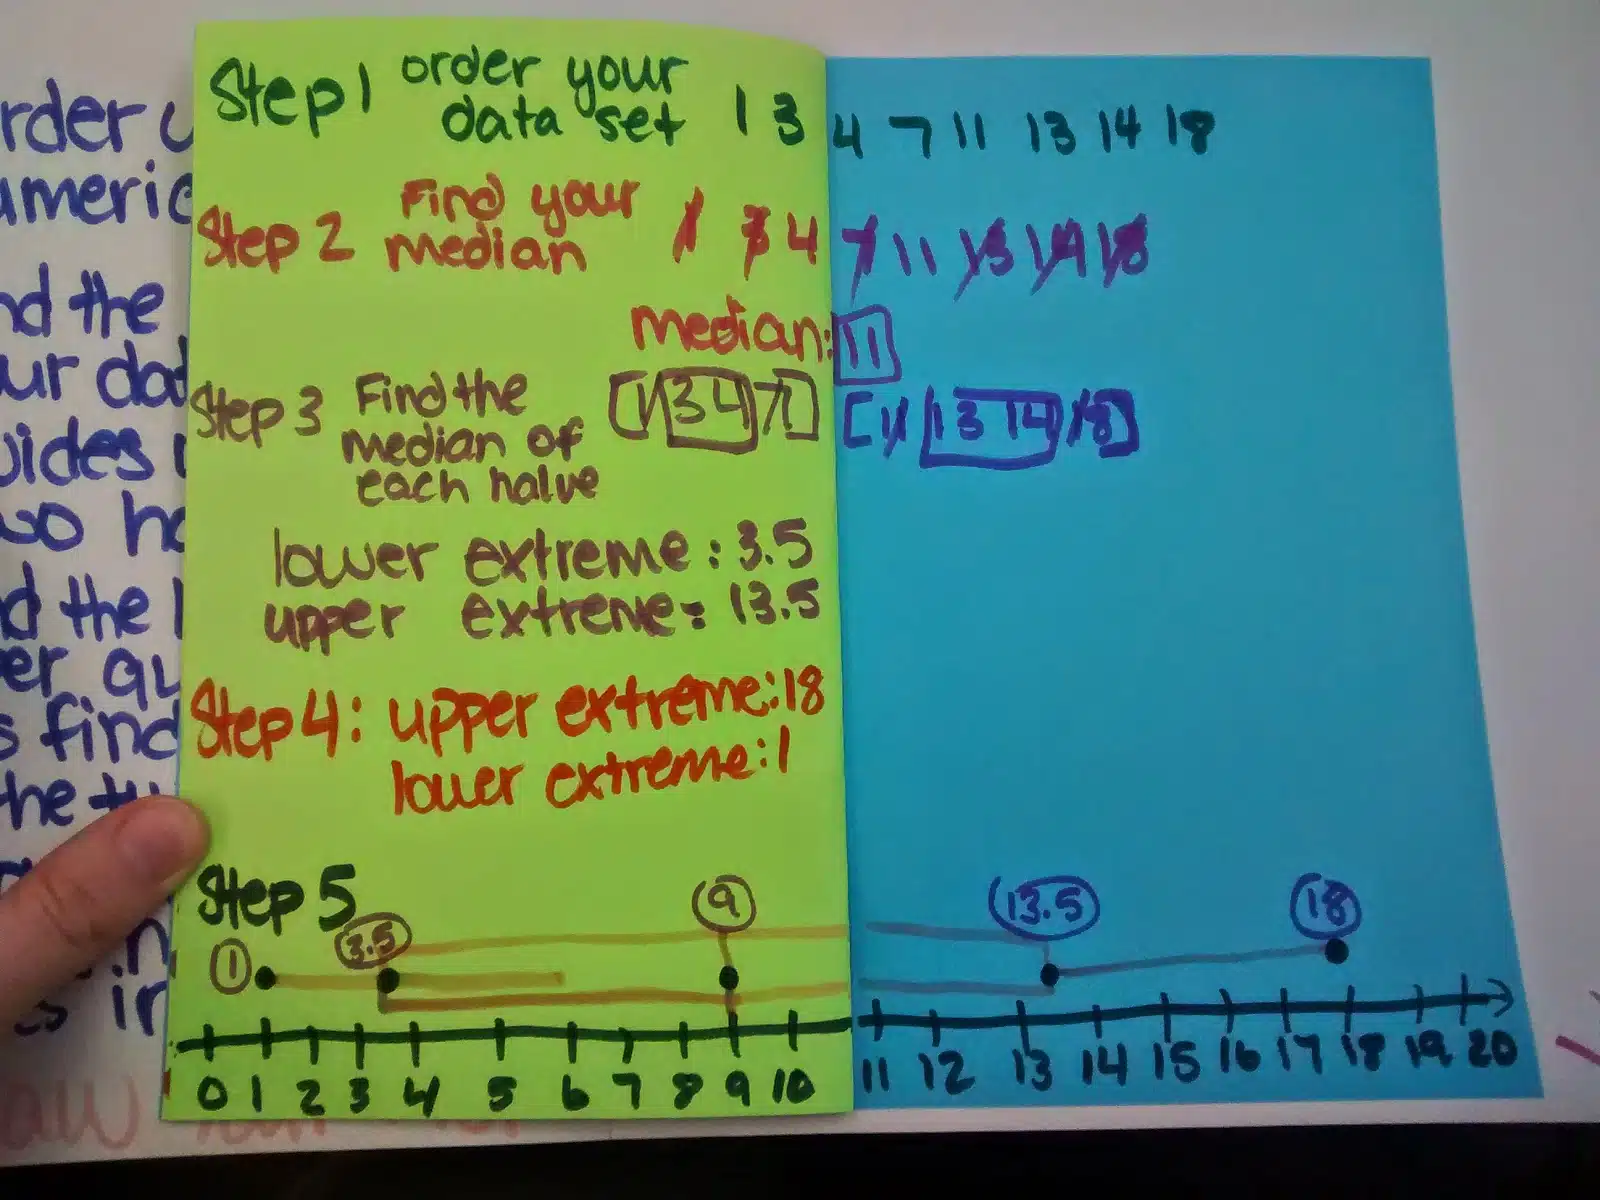 Step 1 order your data set 1 3 4 7 11 13 14 18
Step 2 Find your median 1 3 4 7 11 13 14 18
median: 11
Step 3 Find the median of each halve [1 3 4 7] [11 13 14 18]
lower extreme: 3.5
upper extreme: 13.5
Step 4: upper extreme: 18
lower extreme: 1
Step 5
1 3.5 9 13.5 18
0 1 2 3 4 5 6 7 8 9 10 11 12 13 14 15 16 17 18 19 20
rder
umeric
nd the
ur dat
vides
wo ha
d the l
er qu
s find
the tw
in
es in
aw